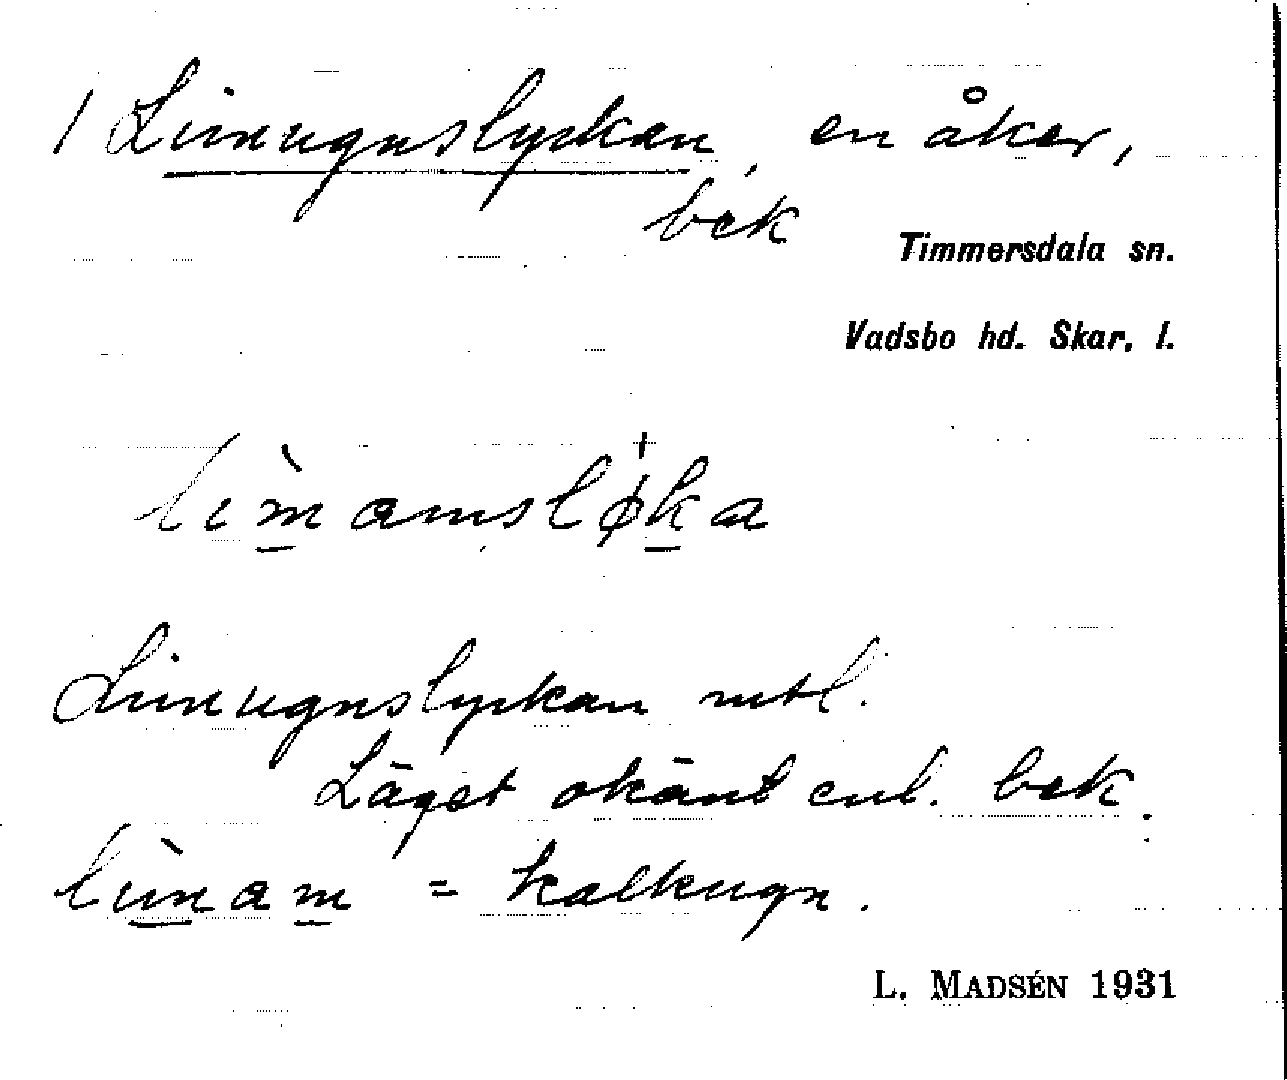 / Limugnslyckan, en åker,
bek
Timmersdala sn.
Vadsbo hd. Skar. l.
lìmamsløka
Limugnslyckan mtl.
Läget okänt enl. bek.
lìmam = kalkugn.
L. MADSÉN 1931